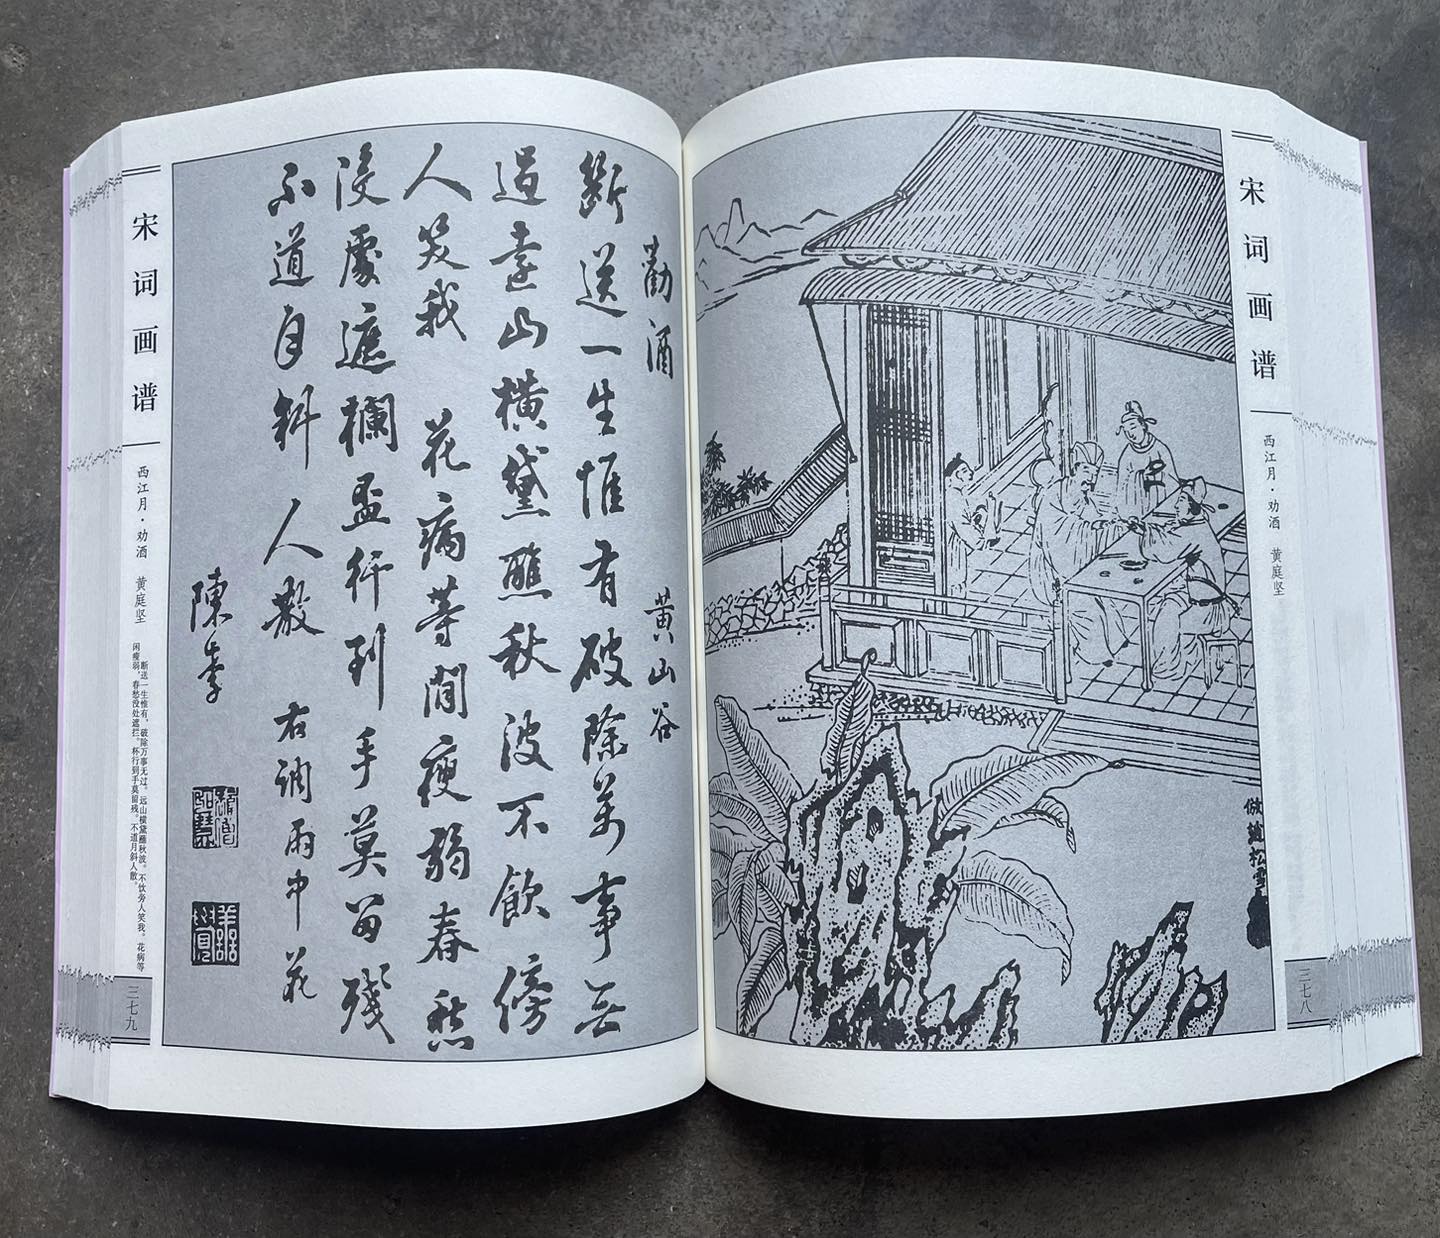 宋词画谱
西江月·劝酒 黄庭坚
三七八
倣趙松雪
勸酒 黄山谷
斷送一生惟有破除萬事無
過遠山橫黛蘸秋波不飲傍
人笑我 花病等閒瘦弱春愁
沒處遮欄盃行到手莫留殘
不道月斜人散 右調雨中花
陳
宋词画谱
西江月·劝酒 黄庭坚
断送一生惟有，破除万事无过。远山横黛蘸秋波。不饮旁人笑我。花病等
闲瘦弱，春愁没处遮拦。杯行到手莫留残。不道月斜人散。
三七九